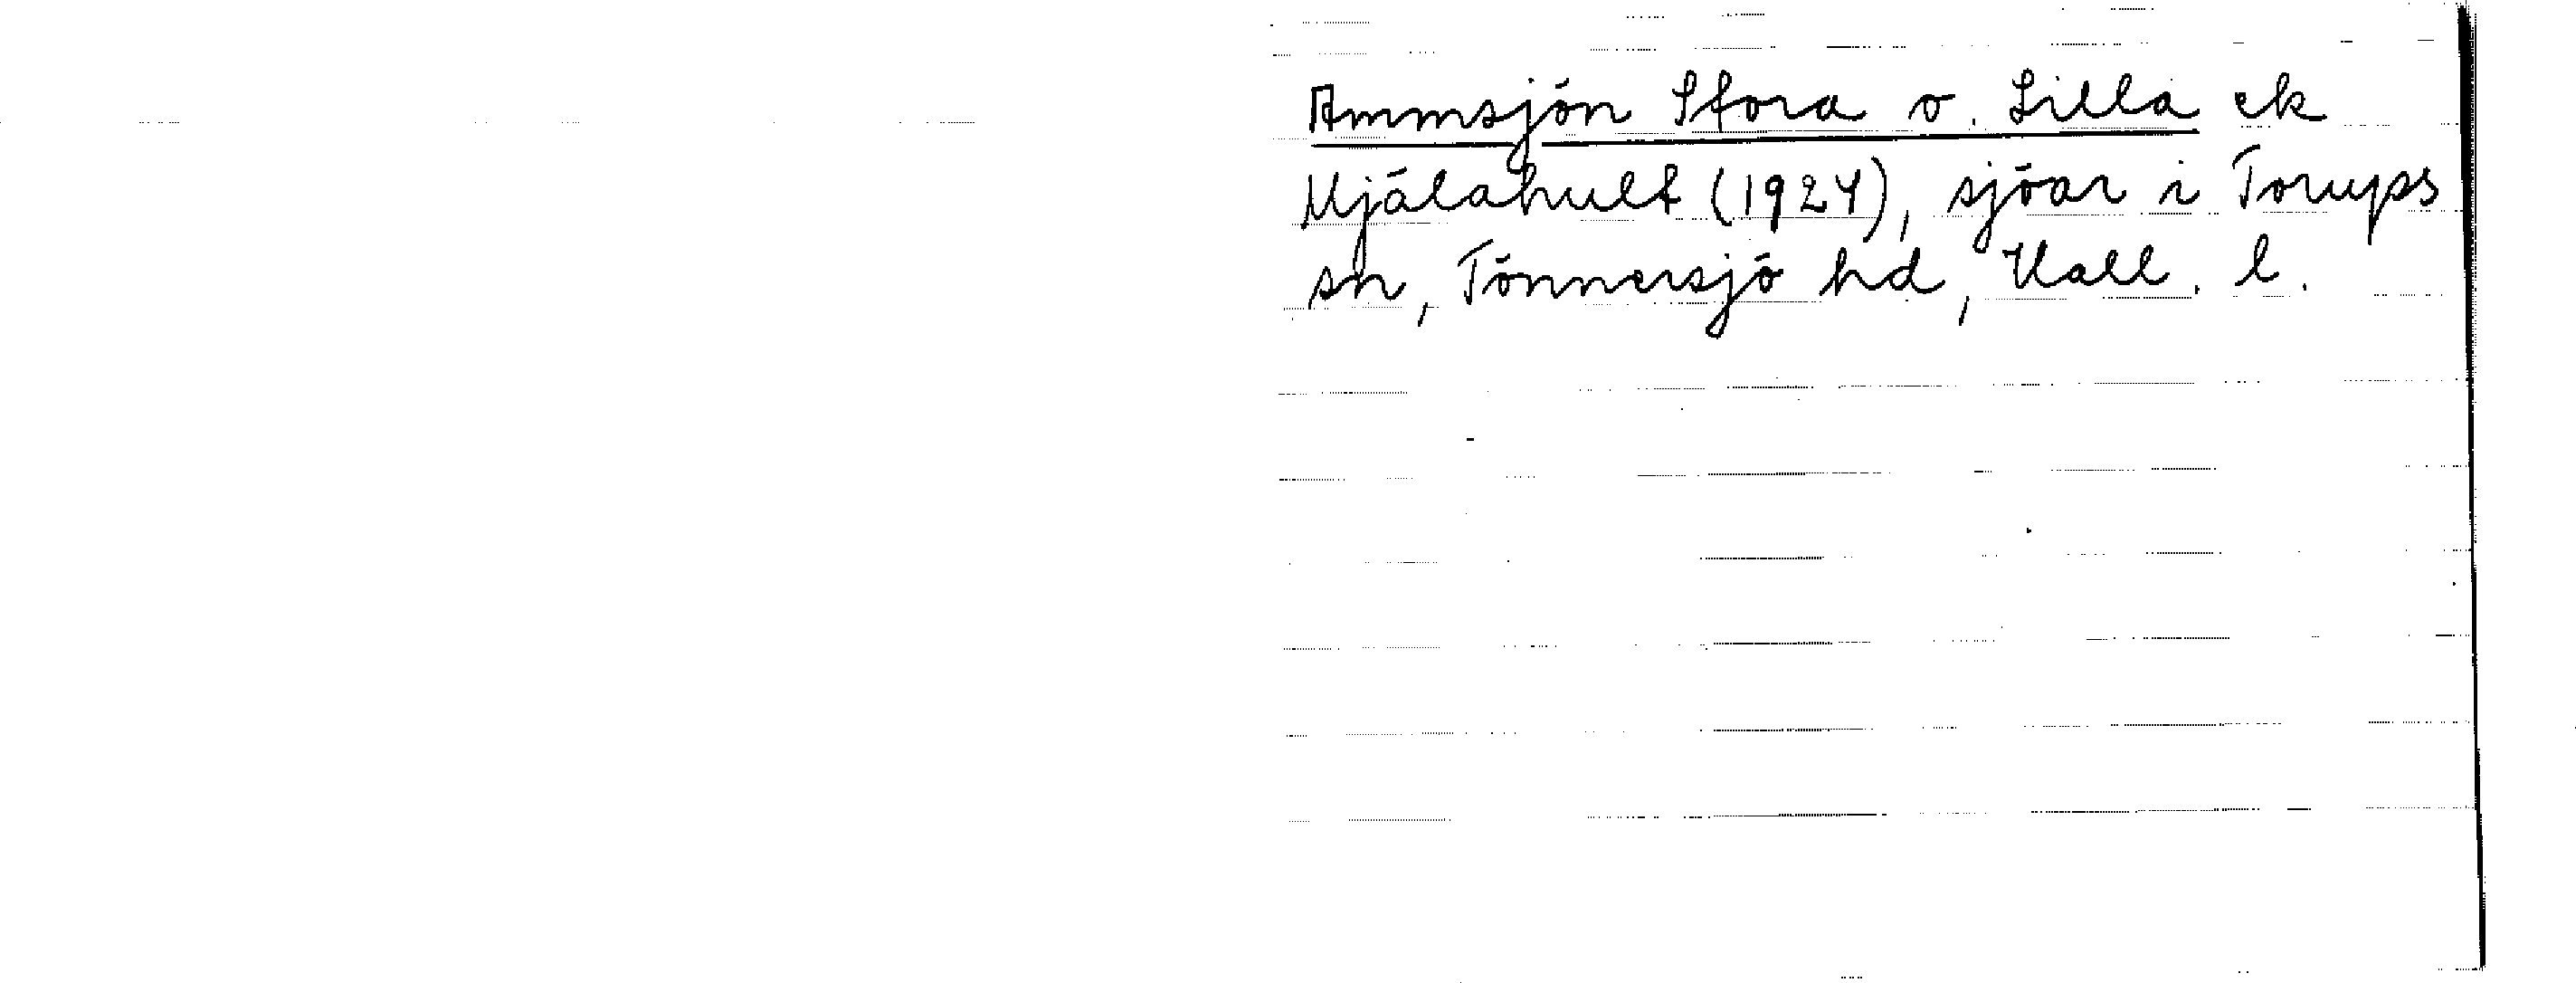 Ammsjön Stora o. Lilla ek
Mjälahult (1924), sjöar i Torups
sn, Tönnersjö hd, Hall. l.